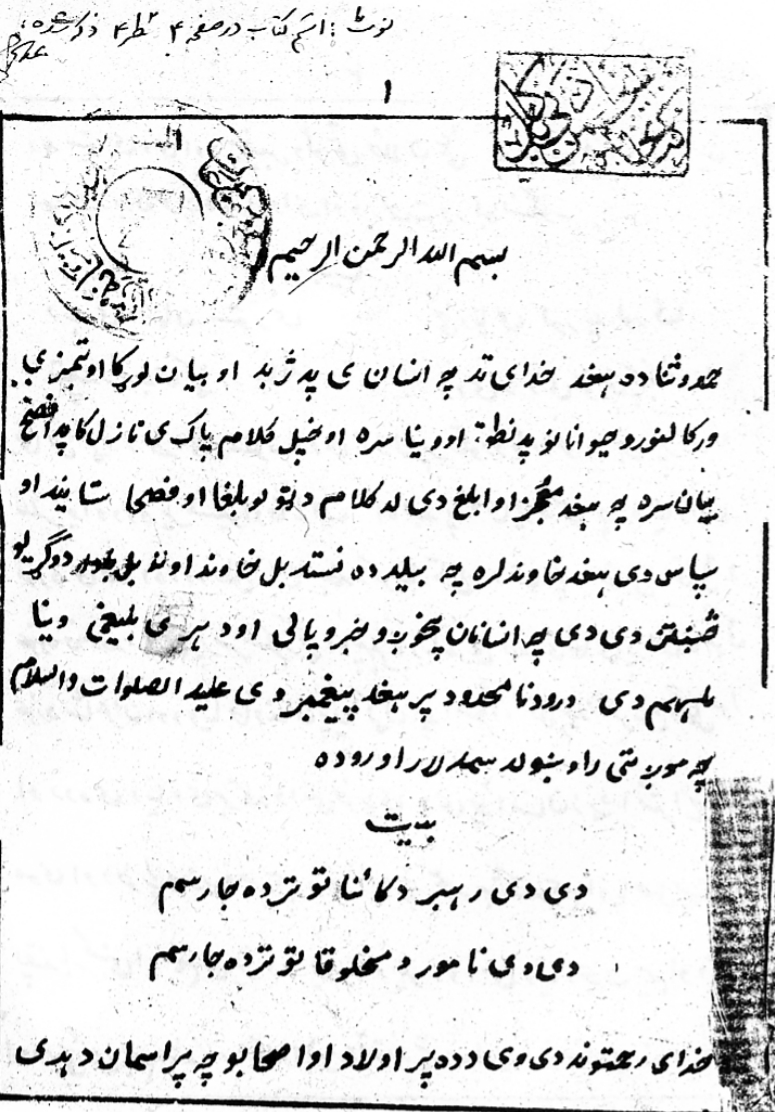 نوټ: اسم کتاب در صفحه ۴ سطر ۴ ذکر شده
۱
بسم الله الرحمن الرحیم
حمد و ثنا ده هغه خدای ته چه انسان ئی په ژبه او بیان لوړ کا او تمیز ئی
ورکا له نورو حیواناتو په نطق او وینا سره او خپل کلام پاک ئی نازل کا په افصح
بیان سره چه هغه معجز او ابلغ دی له کلام د ټولو بلغا او فصحا ستاینه او
سپاس دی هغه خاوند لره چه بیله ده نسته بل خاوند او نه بل دوګړیو
څښتن دی دی چه انسانان په خوږو خبرو پالی او د هر بلیغی وینا
ملهم دی درود نا محدود پر هغه پیغمبر وی علیه الصلوات والسلام
چه موږ ئی راوښوله سمه لار او روده
بیت
دی دی رهبر د کائنا تو تر ده جار سم
دی دی نامور د مخلوقا تو تر ده جار سم
خدای رحمتونه دی وی د ده پر اولاد او اصحابو چه پر اسمان د هدی